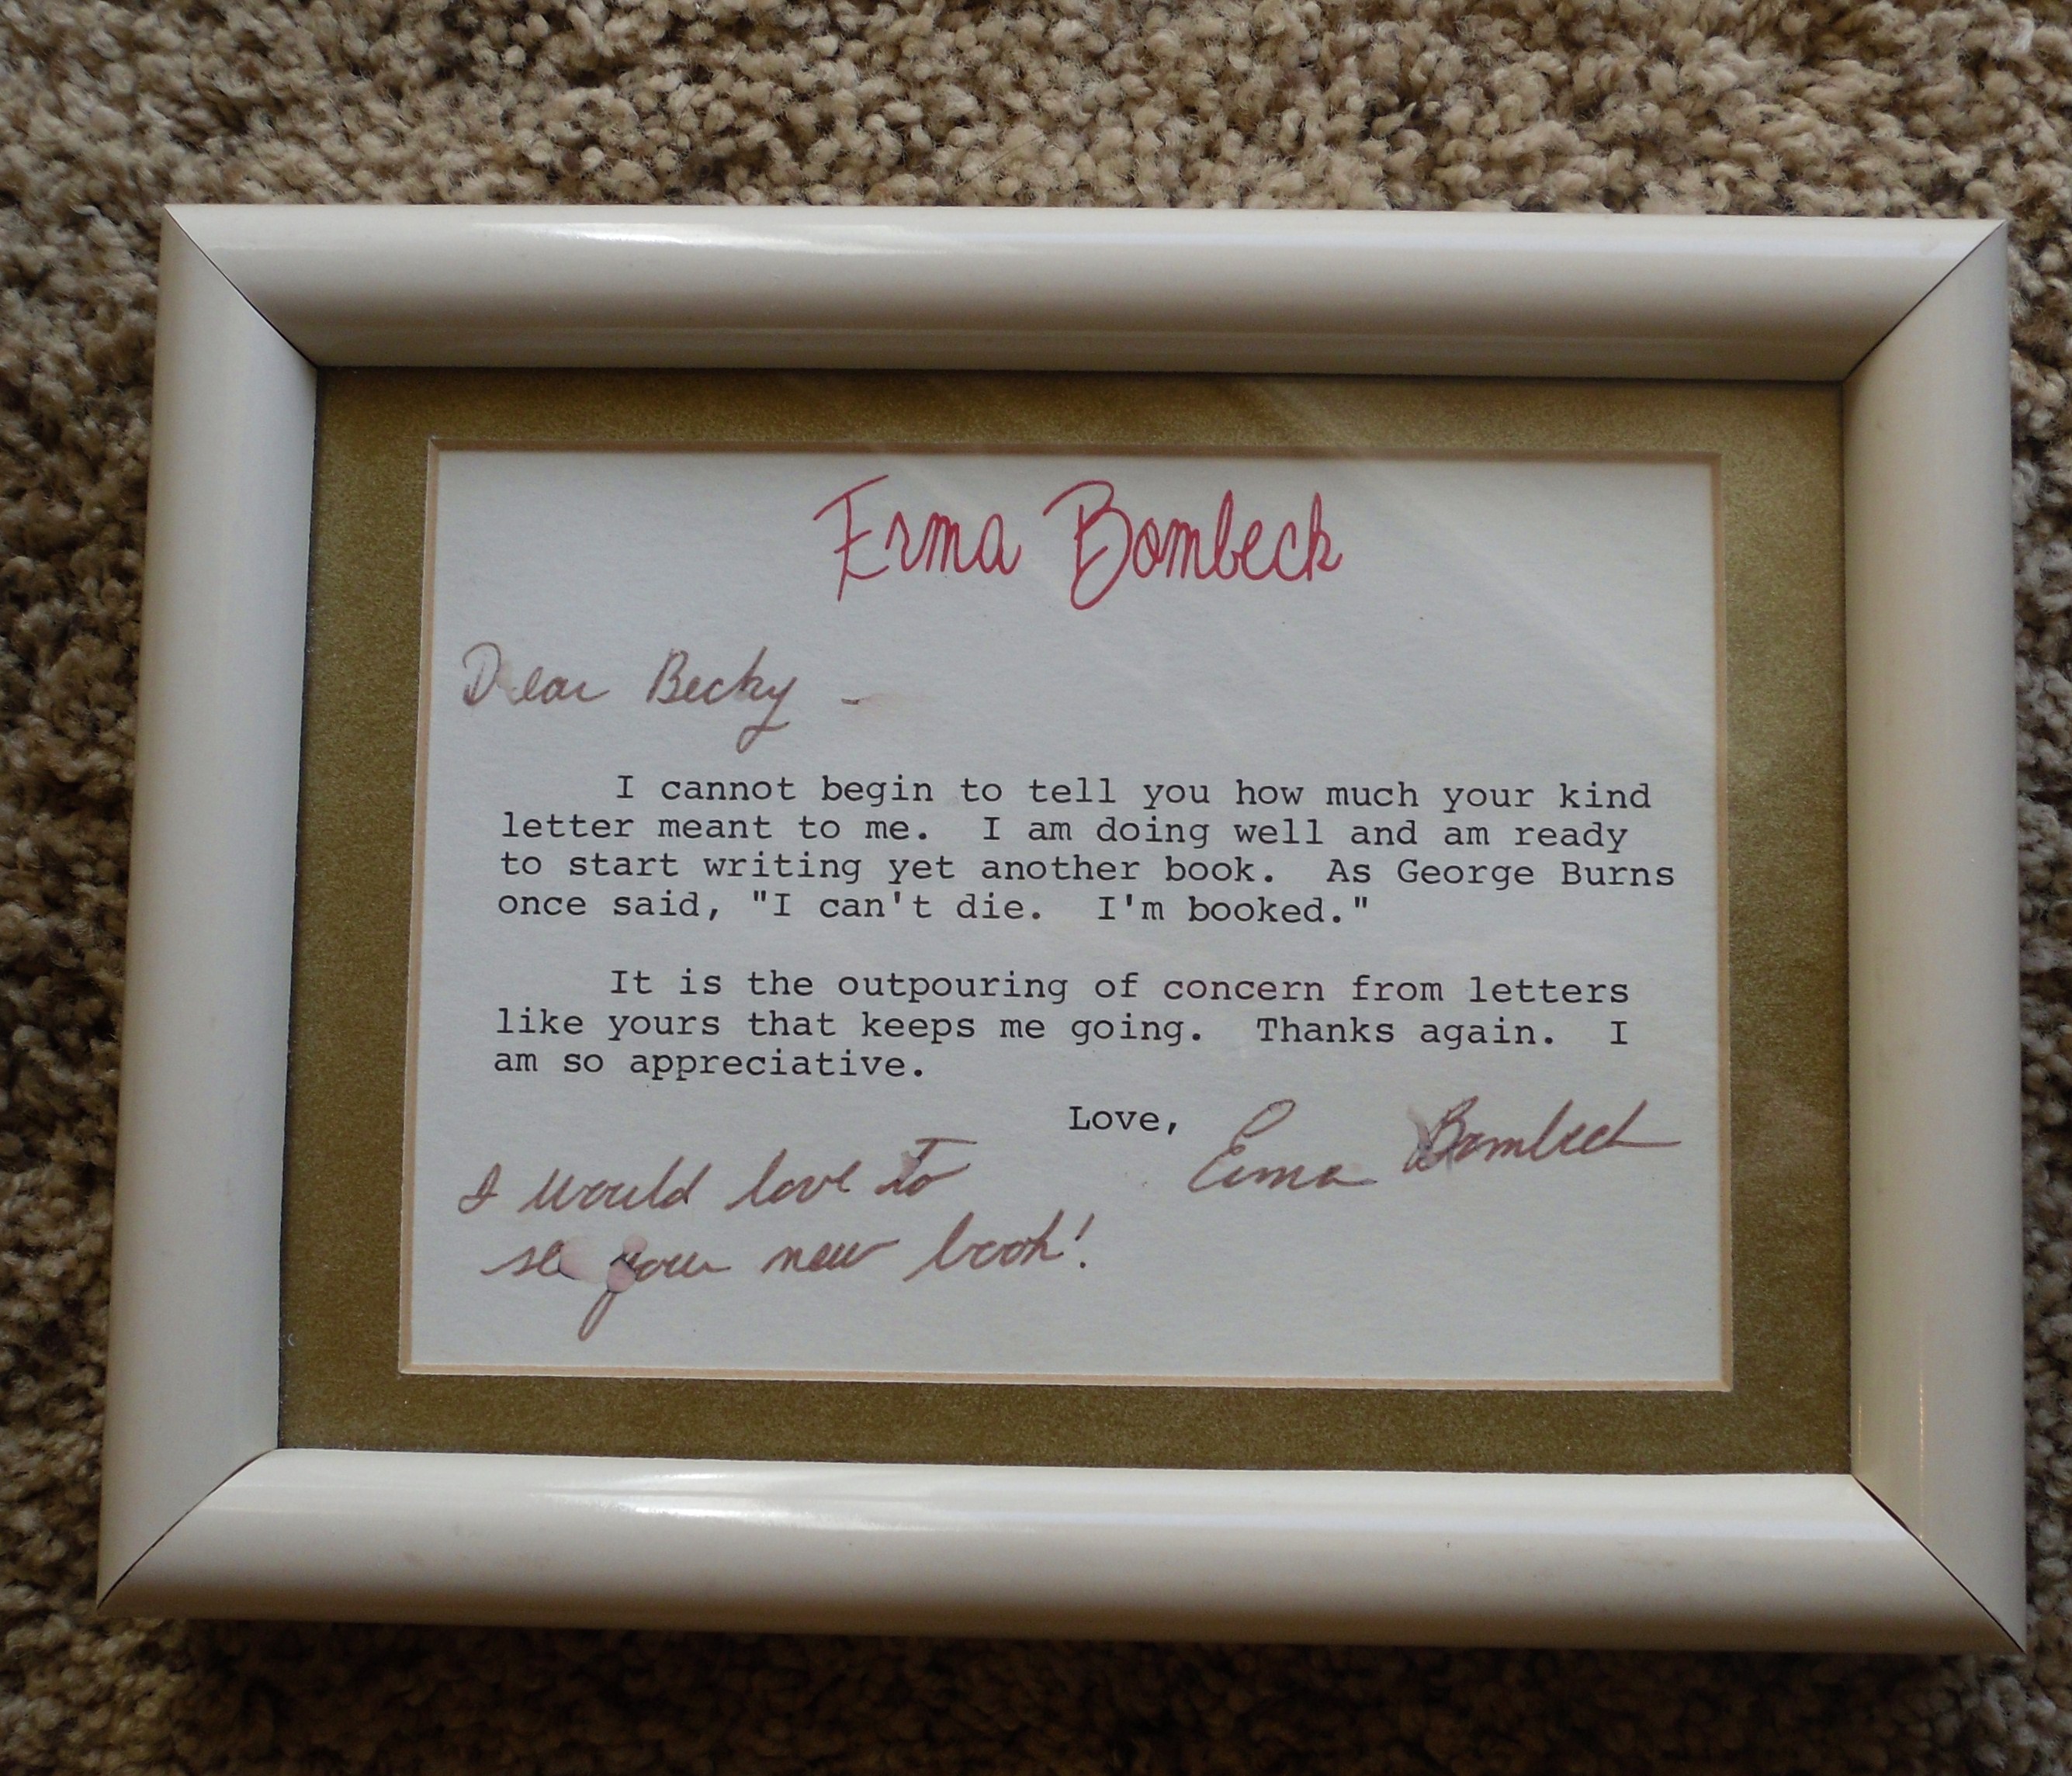 Erma Bombeck
Dear Becky -
I cannot begin to tell you how much your kind
letter meant to me.  I am doing well and am ready
to start writing yet another book.  As George Burns
once said, "I can't die.  I'm booked."
It is the outpouring of concern from letters
like yours that keeps me going.  Thanks again.  I
am so appreciative.
Love, Erma Bombeck
I would love to
see your new book!